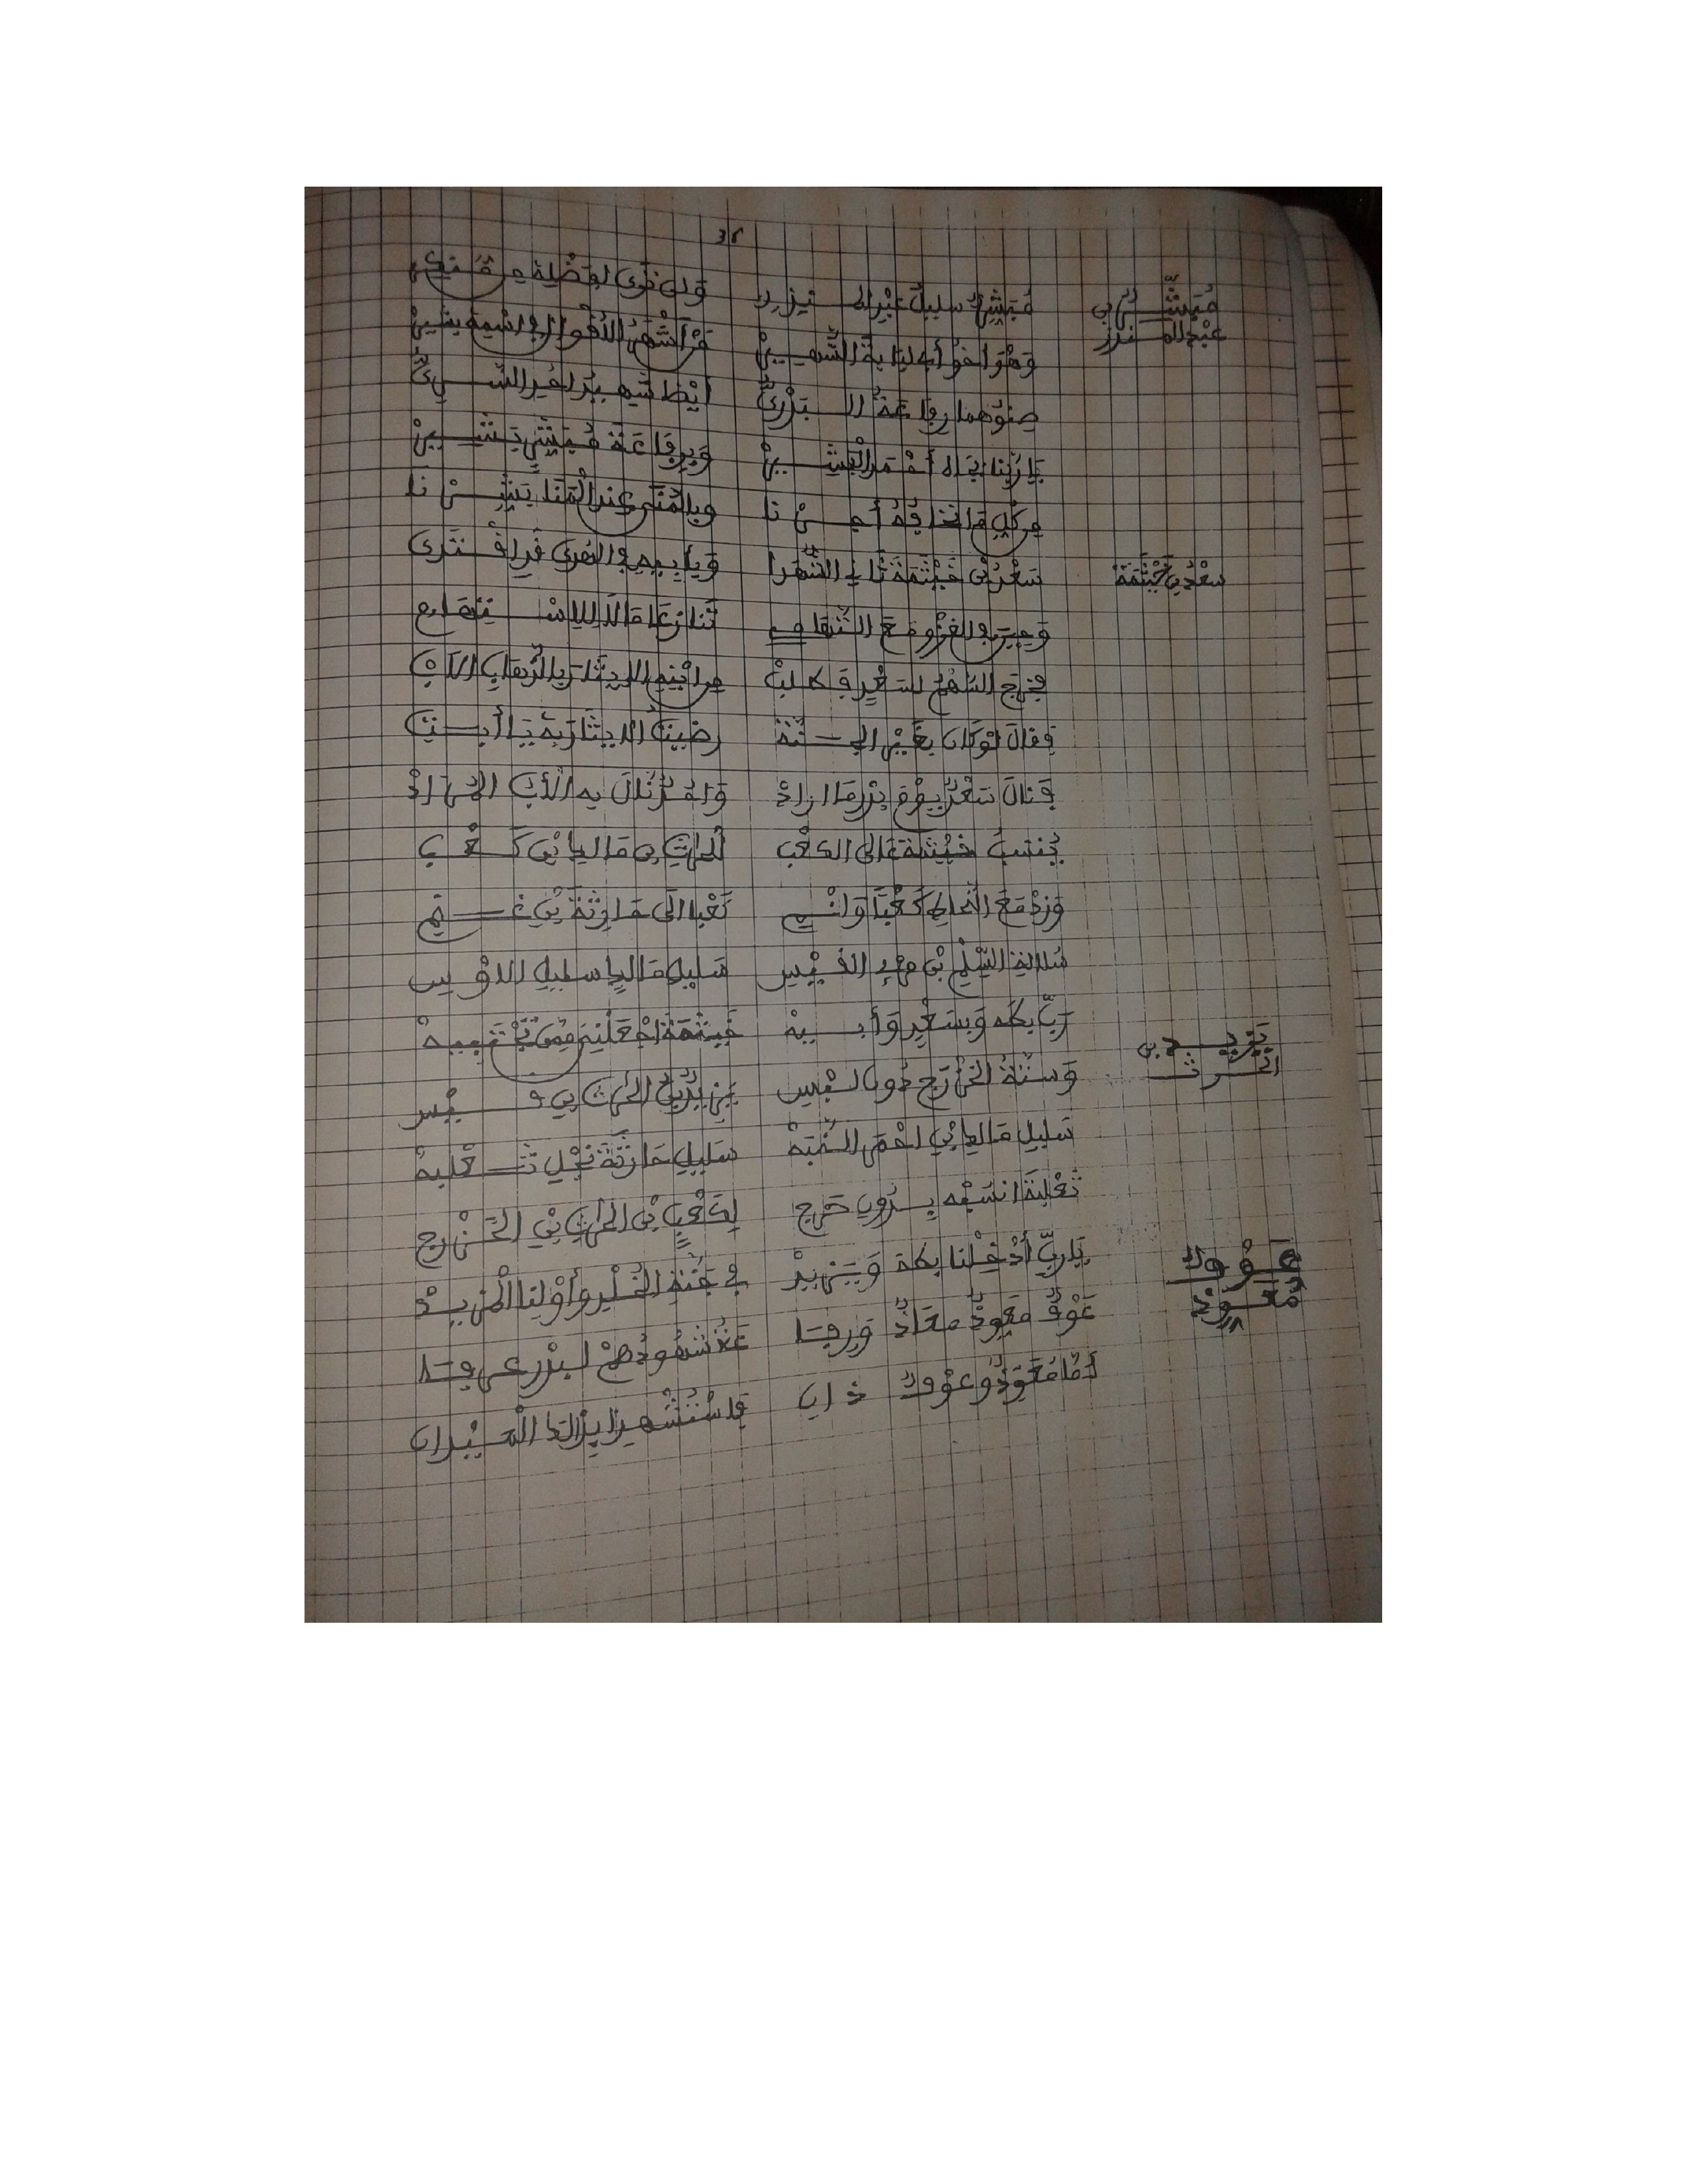 36
مُبَشِّرُ بْنُ
عَبْدِ الْمُنْذِرْ
مُبَشِّرٌ سَلِيلُ عَبْدِ الْمُنْذِرِ
وَهْوَ أَخُو أَبِي لُبَابَةَ الشَّهِيرْ قَدْ أَشْهَرُ الْأَقْوَالِ فِي اسْمِهِ بَشِيرْ
صِنْوُهُمَا رِفَاعَةُ الْبَدْرِيُّ أَيْضًا شَهِيدُ
يَا رَبَّنَا بِجَاهِ أَحْمَدَ الْبَشِيرْ وَبِرِفَاعَةَ مُبَشِّرٍ بَشِيرْ
مِنْ كُلِّ مَا نَخَافُهُ أَجِرْنَا وَبِالْمُنَى عِنْدَ الْفَنَا بَشِّرْنَا
سَعْدُ بْنُ خَيْثَمَةَ
سَعْدُ بْنُ خَيْثَمَةَ ثَانِي الشُّهَدَا وَبِأَبِيهِ فِي الْهُدَى قَدِ اقْتَدَى
وَحِينَ فِي الْغَزْوِ مَعَ التِّهَامِي تَنَازَعَا مَالَا لِلِاسْتِهَامِ
فَخَرَجَ السَّهْمُ لِسَعْدٍ فَطَلَبْ مِنِ ابْنِهِ الْإِيثَارَ بِالذَّهَابِ الْأَبْ
فَقَالَ لَوْ كَانَ بِغَيْرِ الْجَنَّةْ رَضِيتُ الْإِيثَارَ بِهِ يَا أَبَتِ
فَنَالَ سَعْدٌ يَوْمَ بَدْرٍ مَا أَرَادْ وَأُحُدٌ نَالَ بِهِ الْأَبُ الْمُرَادْ
يُنْسَبُ خَيْثَمَةُ إِلَى الْكَعْبِ الْحَارِثِ بْنِ مَالِكِ بْنِ كَعْبِ
وَزِدْ مَعَ النَّحَّاطِ كَعْبًا وَانْمِ كَعْبًا إِلَى حَارِثَةَ بْنِ غَنْمِ
سُلَالَةِ السِّلْمِ بْنِ امْرِئِ الْقَيْسِ سَلِيلِ مَالِكٍ سَلِيلِ الْأَوْسِ
رَبِّ بِطَهَ وَبِسَعْدٍ وَأَبِيهْ خَيْثَمَةَ اجْعَلْنِيَ مِمَّنْ تَجْتَبِيهْ
يَزِيدُ بْنُ
الْحَرْثِ
وَسِتَّةُ الْخَزْرَجِ دُونَ لَبْسِ يَزِيدُ بْنُ الْحَرْثِ بْنِ قَيْسِ
سَلِيلِ مَالِكِ بْنِ أَحْمَرَ النُّخْبَهْ سَلِيلِ حَارِثَةَ نَجْلِ ثَعْلَبَهْ
ثَعْلَبَةَ انْسُبْهُ بِدُونِ حَرَجِ لِكَعْبٍ بْنِ الْحَرْثِ بْنِ الْخَزْرَجِ
يَا رَبِّ أَدْخِلْنَا بِطَهَ وَيَزِيدْ فِي جَنَّةِ الْخُلْدِ وَأَوْلِنَا الْمَزِيدْ
عَوْفٌ
مُعَوِّذٌ
عَوْفٌ مُعَوِّذٌ مُعَاذٌ وَرِفَا عَةُ شُهُودُهُمْ لِبَدْرٍ عُرِفَا
أَمَّا مُعَوِّذٌ وَعَوْفٌ ذَانِ فَاسْتُشْهِدَا بِذَلِكَ الْمَيْدَانِ